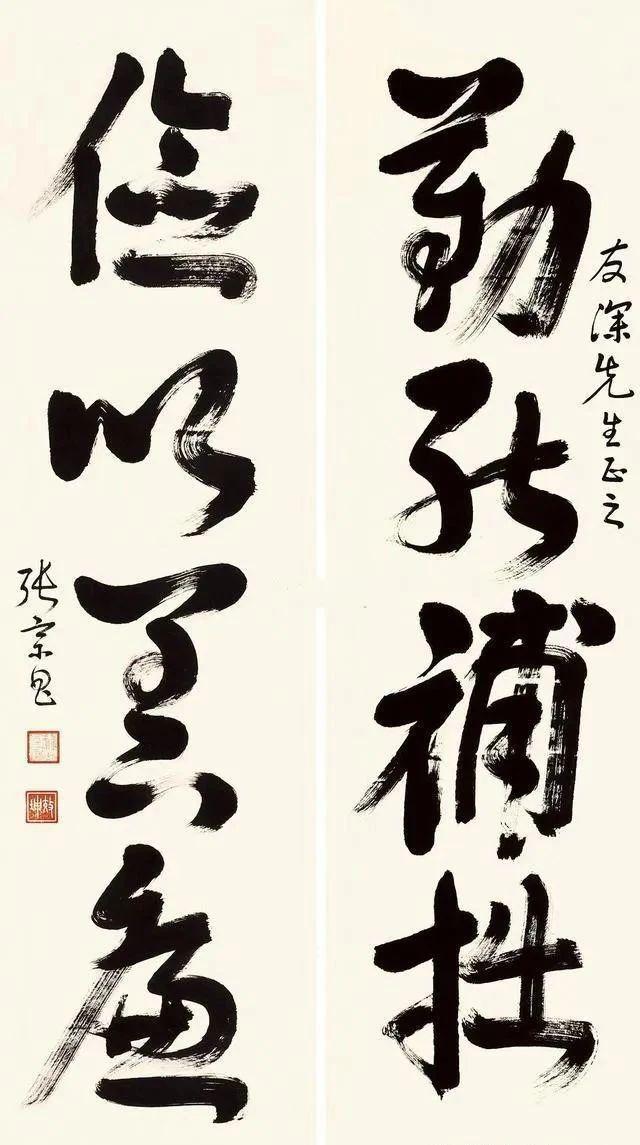 友深先生正之
勤能補拙
儉以養廉
張宗昌
效坤